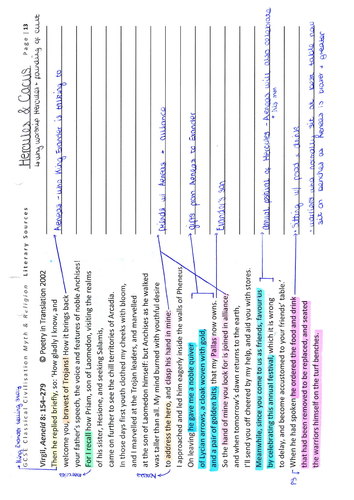 GCSE Classical Civilisation Myth & Religion Literary Sources Page | 13
Hercules & Cacus
Virgil, Aeneid 8: 154–279 © Poetry in Translation 2002
Then he replied briefly, so: 'How gladly I know, and
welcome you, bravest of Trojans! How it brings back
your father's speech, the voice and features of noble Anchises!
For I recall how Priam, son of Laomedon, visiting the realms
of his sister, Hesione, and seeking Salamis,
came on further to see the chill territories of Arcadia.
In those days first youth clothed my cheeks with bloom,
and I marvelled at the Trojan leaders, and marvelled
at the son of Laomedon himself: but Anchises as he walked
was taller than all. My mind burned with youthful desire
to address the hero, and clasp his hand in mine:
I approached and led him eagerly inside the walls of Pheneus.
On leaving he gave me a noble quiver
of Lycian arrows, a cloak woven with gold,
and a pair of golden bits, that my Pallas now owns.
So the hand of mine you look for is joined in alliance,
and when tomorrow's dawn returns to the earth,
I'll send you off cheered by my help, and aid you with stores.
Meanwhile, since you come to us as friends, favour us
by celebrating this annual festival, which it is wrong
to delay, and become accustomed to your friends' table.'
When he had spoken he ordered the food and drink
that had been removed to be replaced, and seated
the warriors himself on the turf benches.
Aeneas - who King Evander is talking to
friends w/ Aeneas + alliance
gifts from Aeneas to Evander
Evander's son
annual festival of Hercules - Aeneas will also celebrate
+ his men
sitting w/ food + drink